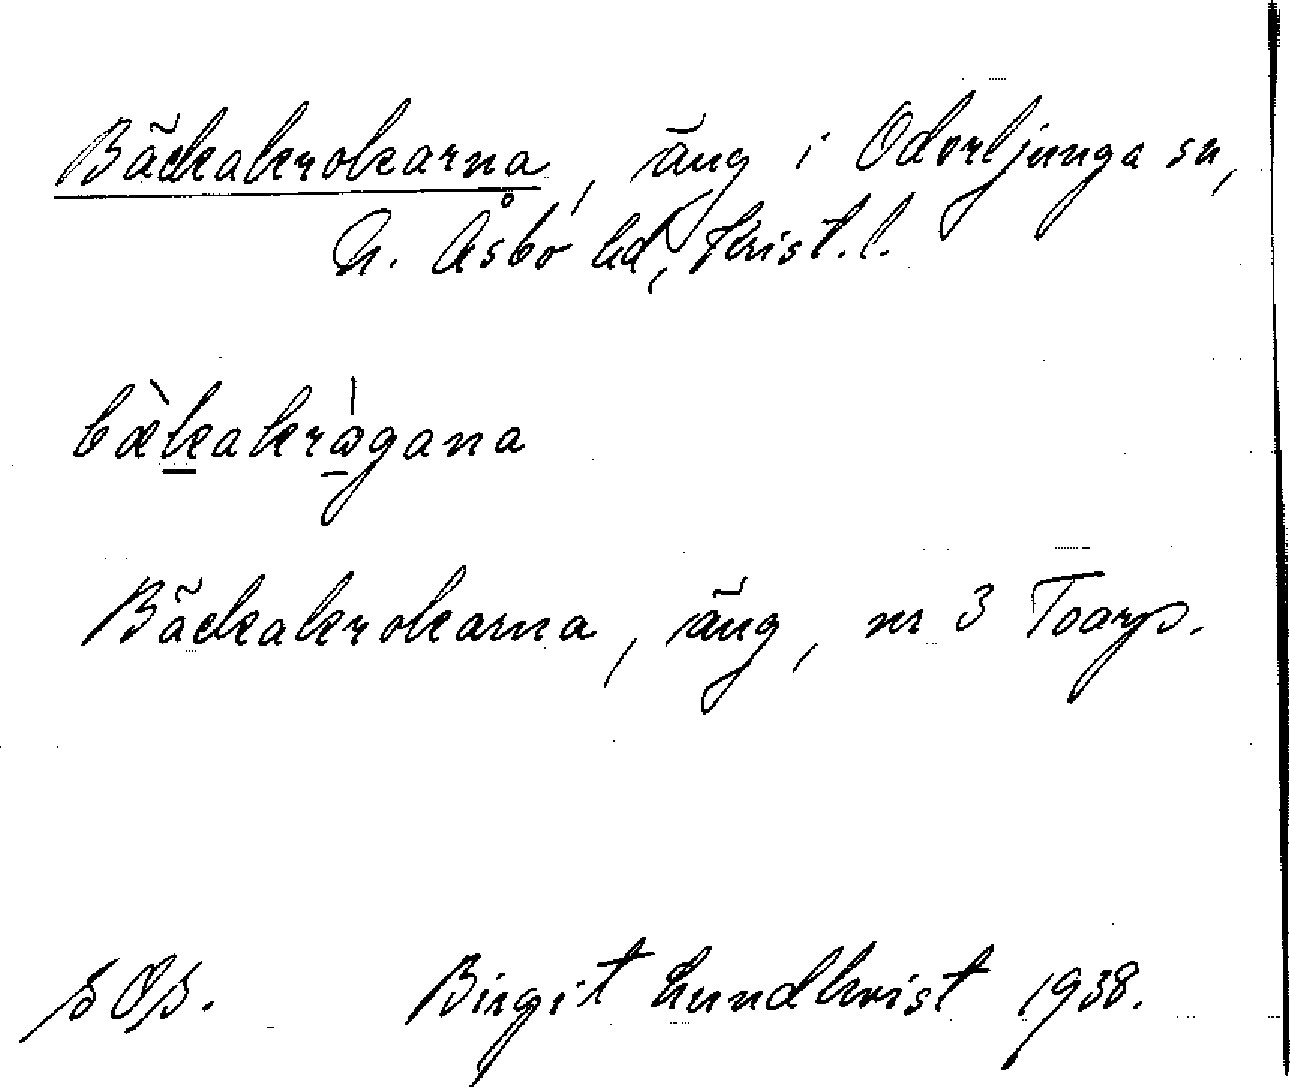 Bäckakrokarna, äng i Oderljunga sn,
N. Åsbo hd, Krist. l.
bæ̀kakràgana
Bäckakrokarna, äng, nr 3 Toarp.
Birgit Lundkvist 1938.